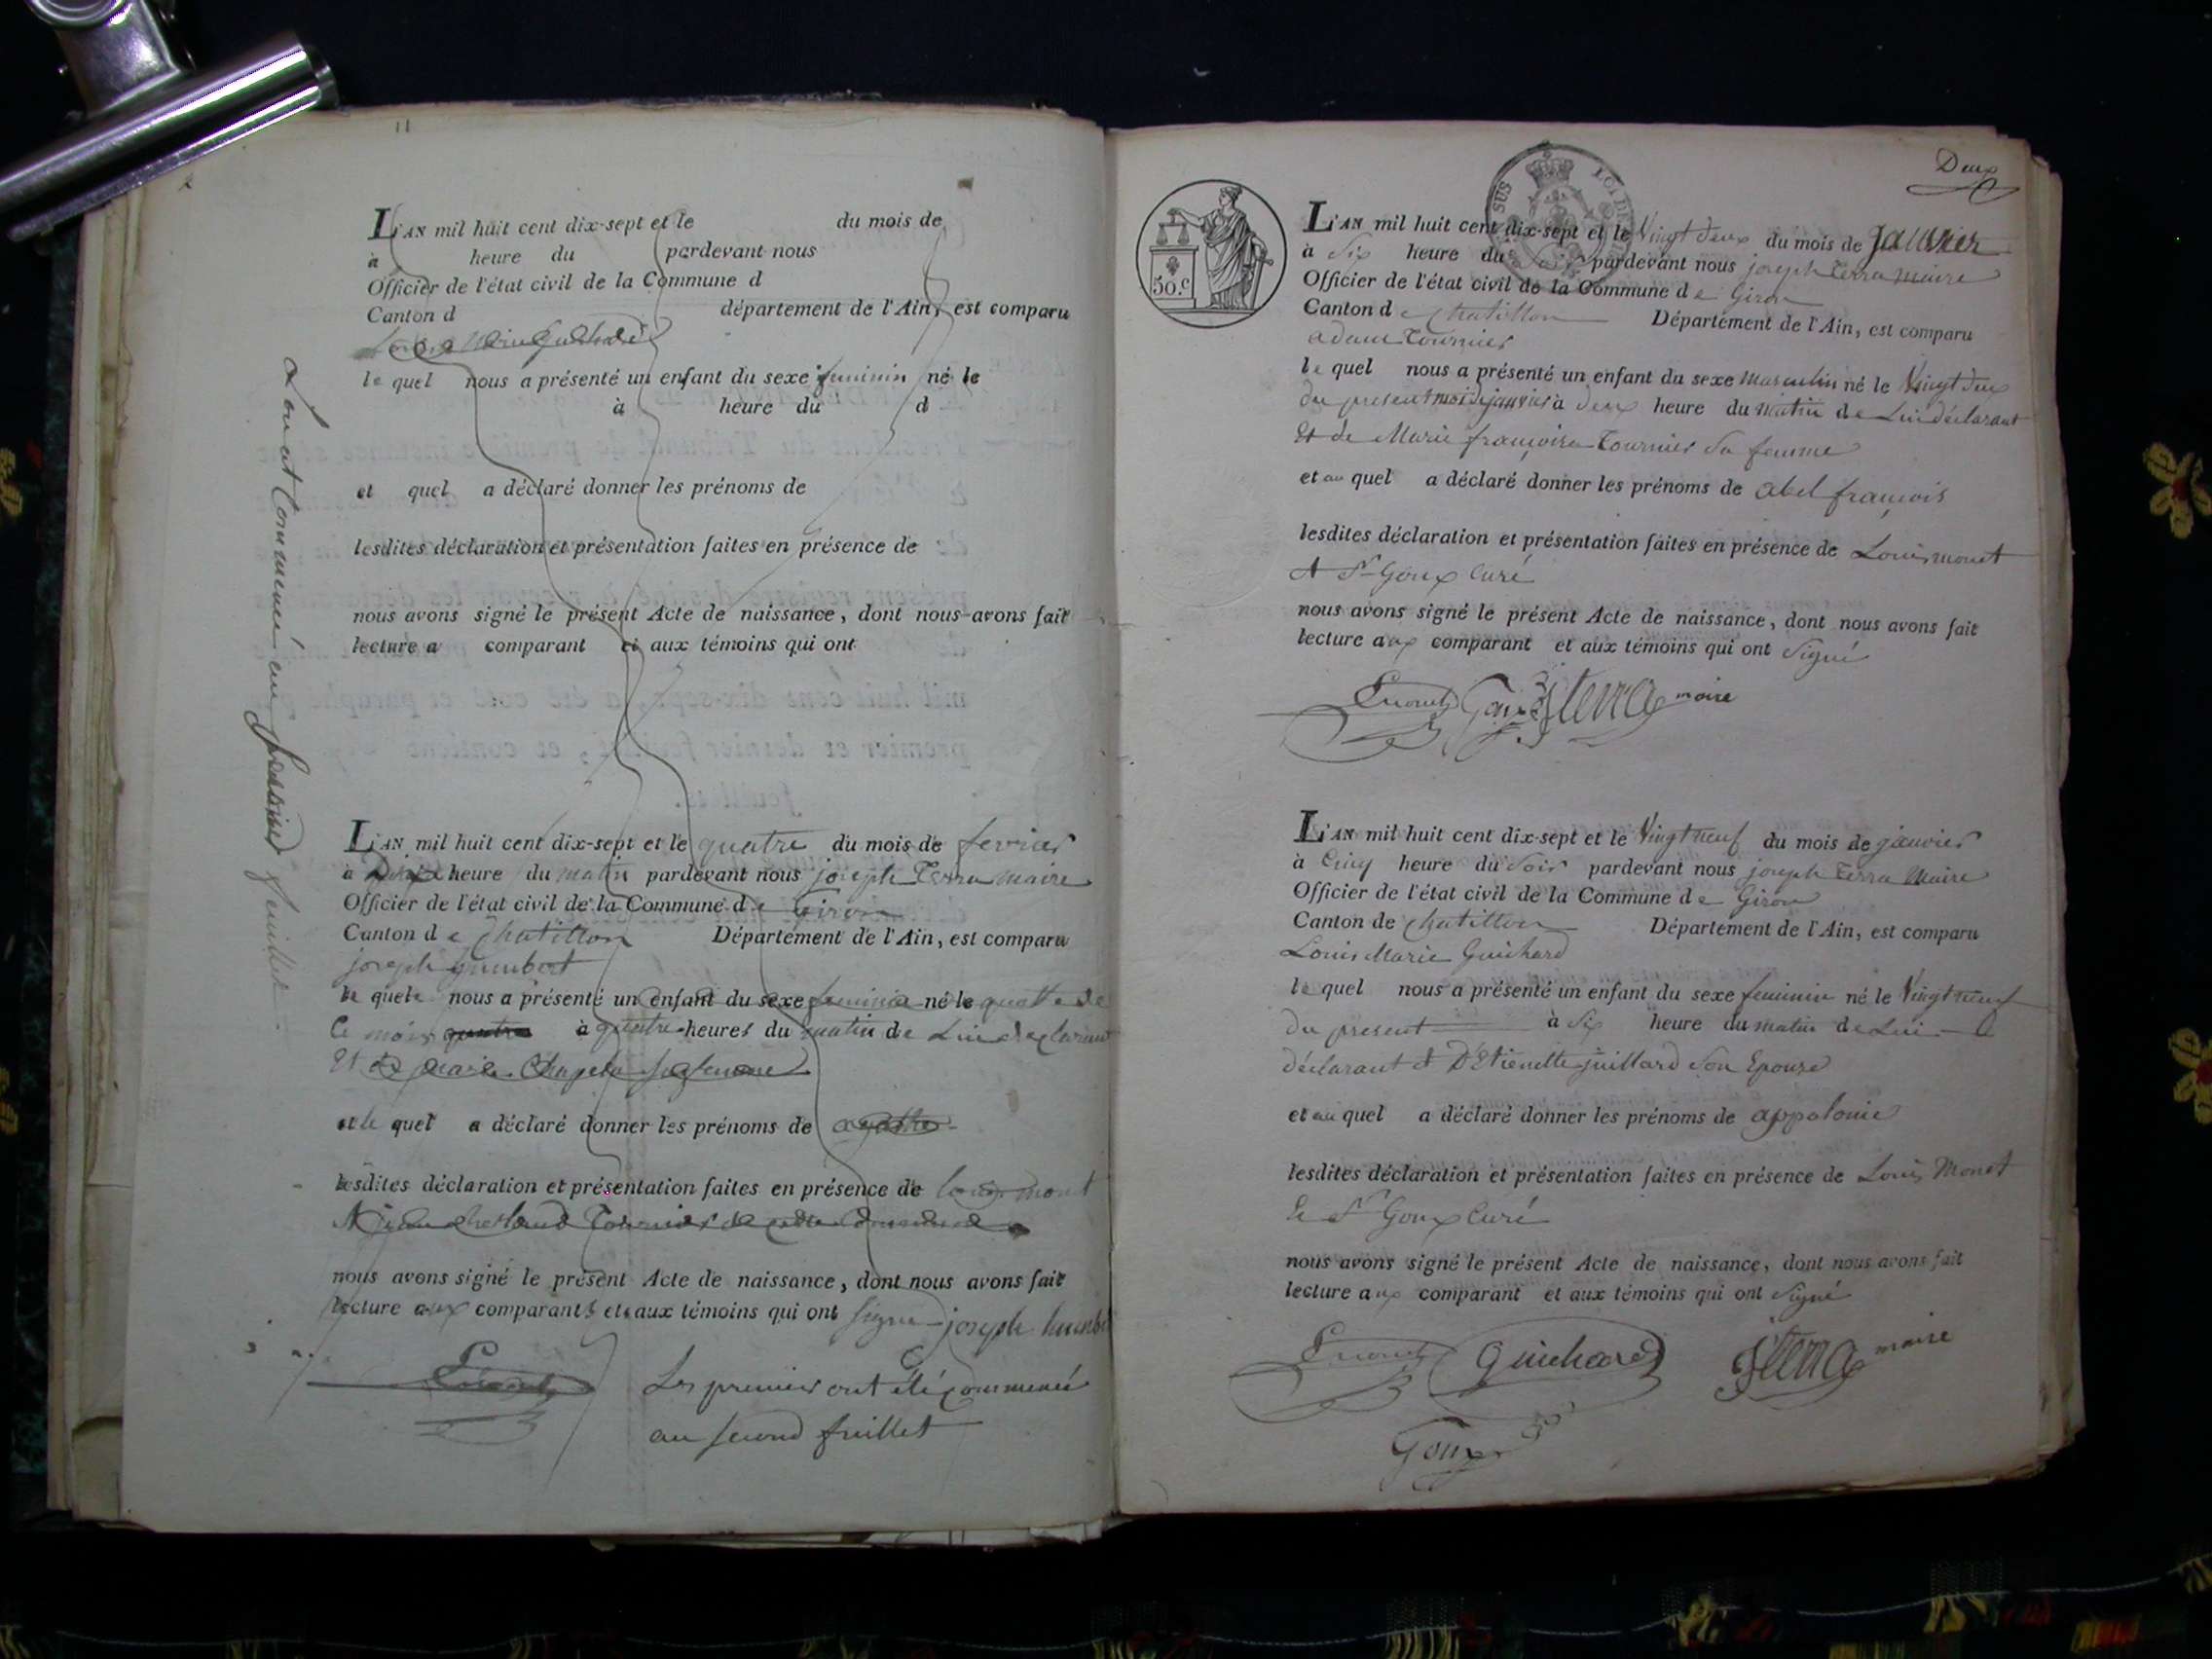 11
L'AN mil huit cent dix-sept et le du mois de
à heure du pardevant nous
Officier de l'état civil de la Commune d
Canton d département de l'Ain, est comparu
le quel nous a présenté un enfant du sexe feminin né le
à heure du d
et quel a déclaré donner les prénoms de
lesdites déclaration et présentation faites en présence de
nous avons signé le présent Acte de naissance, dont nous avons fait
lecture a comparant et aux témoins qui ont
feuillet
L'AN mil huit cent dix-sept et le quatre du mois de fevrier
à heure du matin pardevant nous joseph Terra maire
Officier de l'état civil de la Commune de Giron
Canton de Chatillon Département de l'Ain, est comparu
joseph humbert
le quel nous a présenté un enfant du sexe feminin né le quatre de
Ce mois quatre à quatre heures du matin de Lui declarant
Et de Marie Chapelu sa femme
et le quel a déclaré donner les prénoms de agathe
lesdites déclaration et présentation faites en présence de Louis monet
nous avons signé le présent Acte de naissance, dont nous avons fait
lecture aux comparants et aux témoins qui ont signé joseph humbe
Les premier ont été commencé
au second feuillet
Deux
SUS LOI DE
50.c
L'AN mil huit cent dix-sept et le Vingt deux du mois de Janvier
à Six heure du Soir pardevant nous joseph Terra Maire
Officier de l'état civil de la Commune de Giron
Canton de Chatillon Département de l'Ain, est comparu
adam Tournier
le quel nous a présenté un enfant du sexe masculin né le Vingt deux
du present mois de janvier à deux heure du matin de Lui déclarant
Et de Marie françoise Tournier Sa femme
et au quel a déclaré donner les prénoms de abel françois
lesdites déclaration et présentation faites en présence de Louis monet
et Sr Goux Curé
nous avons signé le présent Acte de naissance, dont nous avons fait
lecture aux comparant et aux témoins qui ont Signé
Lmonet Goux JTerra maire
L'AN mil huit cent dix-sept et le Vingt neuf du mois de janvier
à Cinq heure du Soir pardevant nous joseph Terra Maire
Officier de l'état civil de la Commune de Giron
Canton de Chatillon Département de l'Ain, est comparu
Louis Marie Guichard
le quel nous a présenté un enfant du sexe feminin né le Vingt neuf
du present à Six heure du matin de Lui
déclarant et D'Etienette juillard Son Epouse
et au quel a déclaré donner les prénoms de appolonie
lesdites déclaration et présentation faites en présence de Louis Monet
le Sr Goux Curé
nous avons signé le présent Acte de naissance, dont nous avons fait
lecture aux comparant et aux témoins qui ont Signé
Lmonet Guichard JTerra maire
Goux